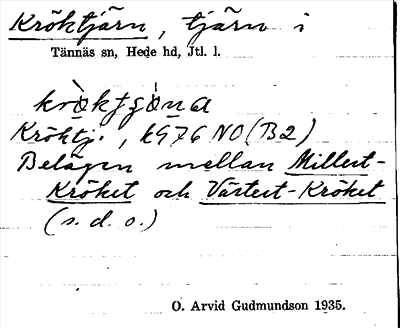 Kröktjärn, tjärn i
Tännäs sn, Hede hd, Jtl. l.
Kröktj., kG76 NO (B2)
Belägen mellan Millert-
Kröket och Västert-Kröket
(s. d. o.)
O. Arvid Gudmundson 1935.